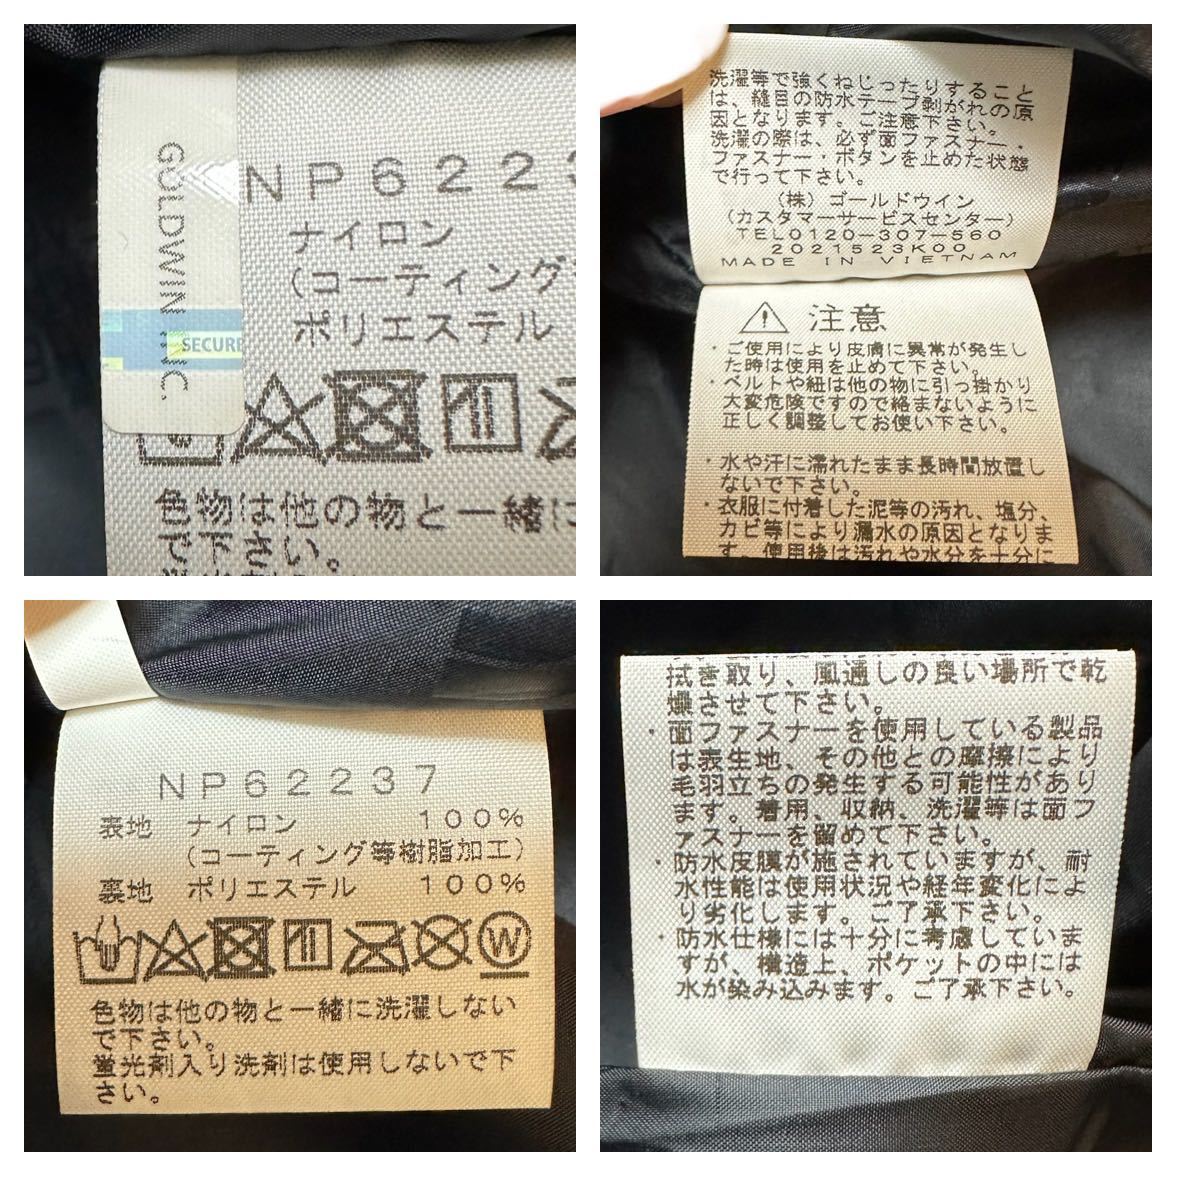 GOLDWIN INC.
SECURE
NP6223
ナイロン
(コーティング
ポリエステル
色物は他の物と一緒に
で下さい。
洗濯等で強くねじったりすること
は、縫目の防水テープ剥がれの原
因となります。ご注意下さい。
洗濯の際は、必ず面ファスナー・
ファスナー・ボタンを止めた状態
で行って下さい。
(株)ゴールドウイン
(カスタマーサービスセンター)
TEL0120-307-560
2021523K00
MADE IN VIETNAM
注意
・ご使用により皮膚に異常が発生し
た時は使用を止めて下さい。
・ベルトや紐は他の物に引っ掛かり
大変危険ですので絡まないように
正しく調整してお使い下さい。
・水や汗に濡れたまま長時間放置し
ないで下さい。
・衣服に付着した泥等の汚れ、塩分、
カビ等により漏水の原因となりま
す。使用後は汚れや水分を十分に
NP62237
表地 ナイロン 100%
(コーティング等樹脂加工)
裏地 ポリエステル 100%
W
色物は他の物と一緒に洗濯しない
で下さい。
蛍光剤入り洗剤は使用しないで下
さい。
拭き取り、風通しの良い場所で乾
燥させて下さい。
・面ファスナーを使用している製品
は表生地、その他との摩擦により
毛羽立ちの発生する可能性があり
ます。着用、収納、洗濯等は面フ
ァスナーを留めて下さい。
・防水皮膜が施されていますが、耐
水性能は使用状況や経年変化によ
り劣化します。ご了承下さい。
・防水仕様には十分に考慮していま
すが、構造上、ポケットの中には
水が染み込みます。ご了承下さい。